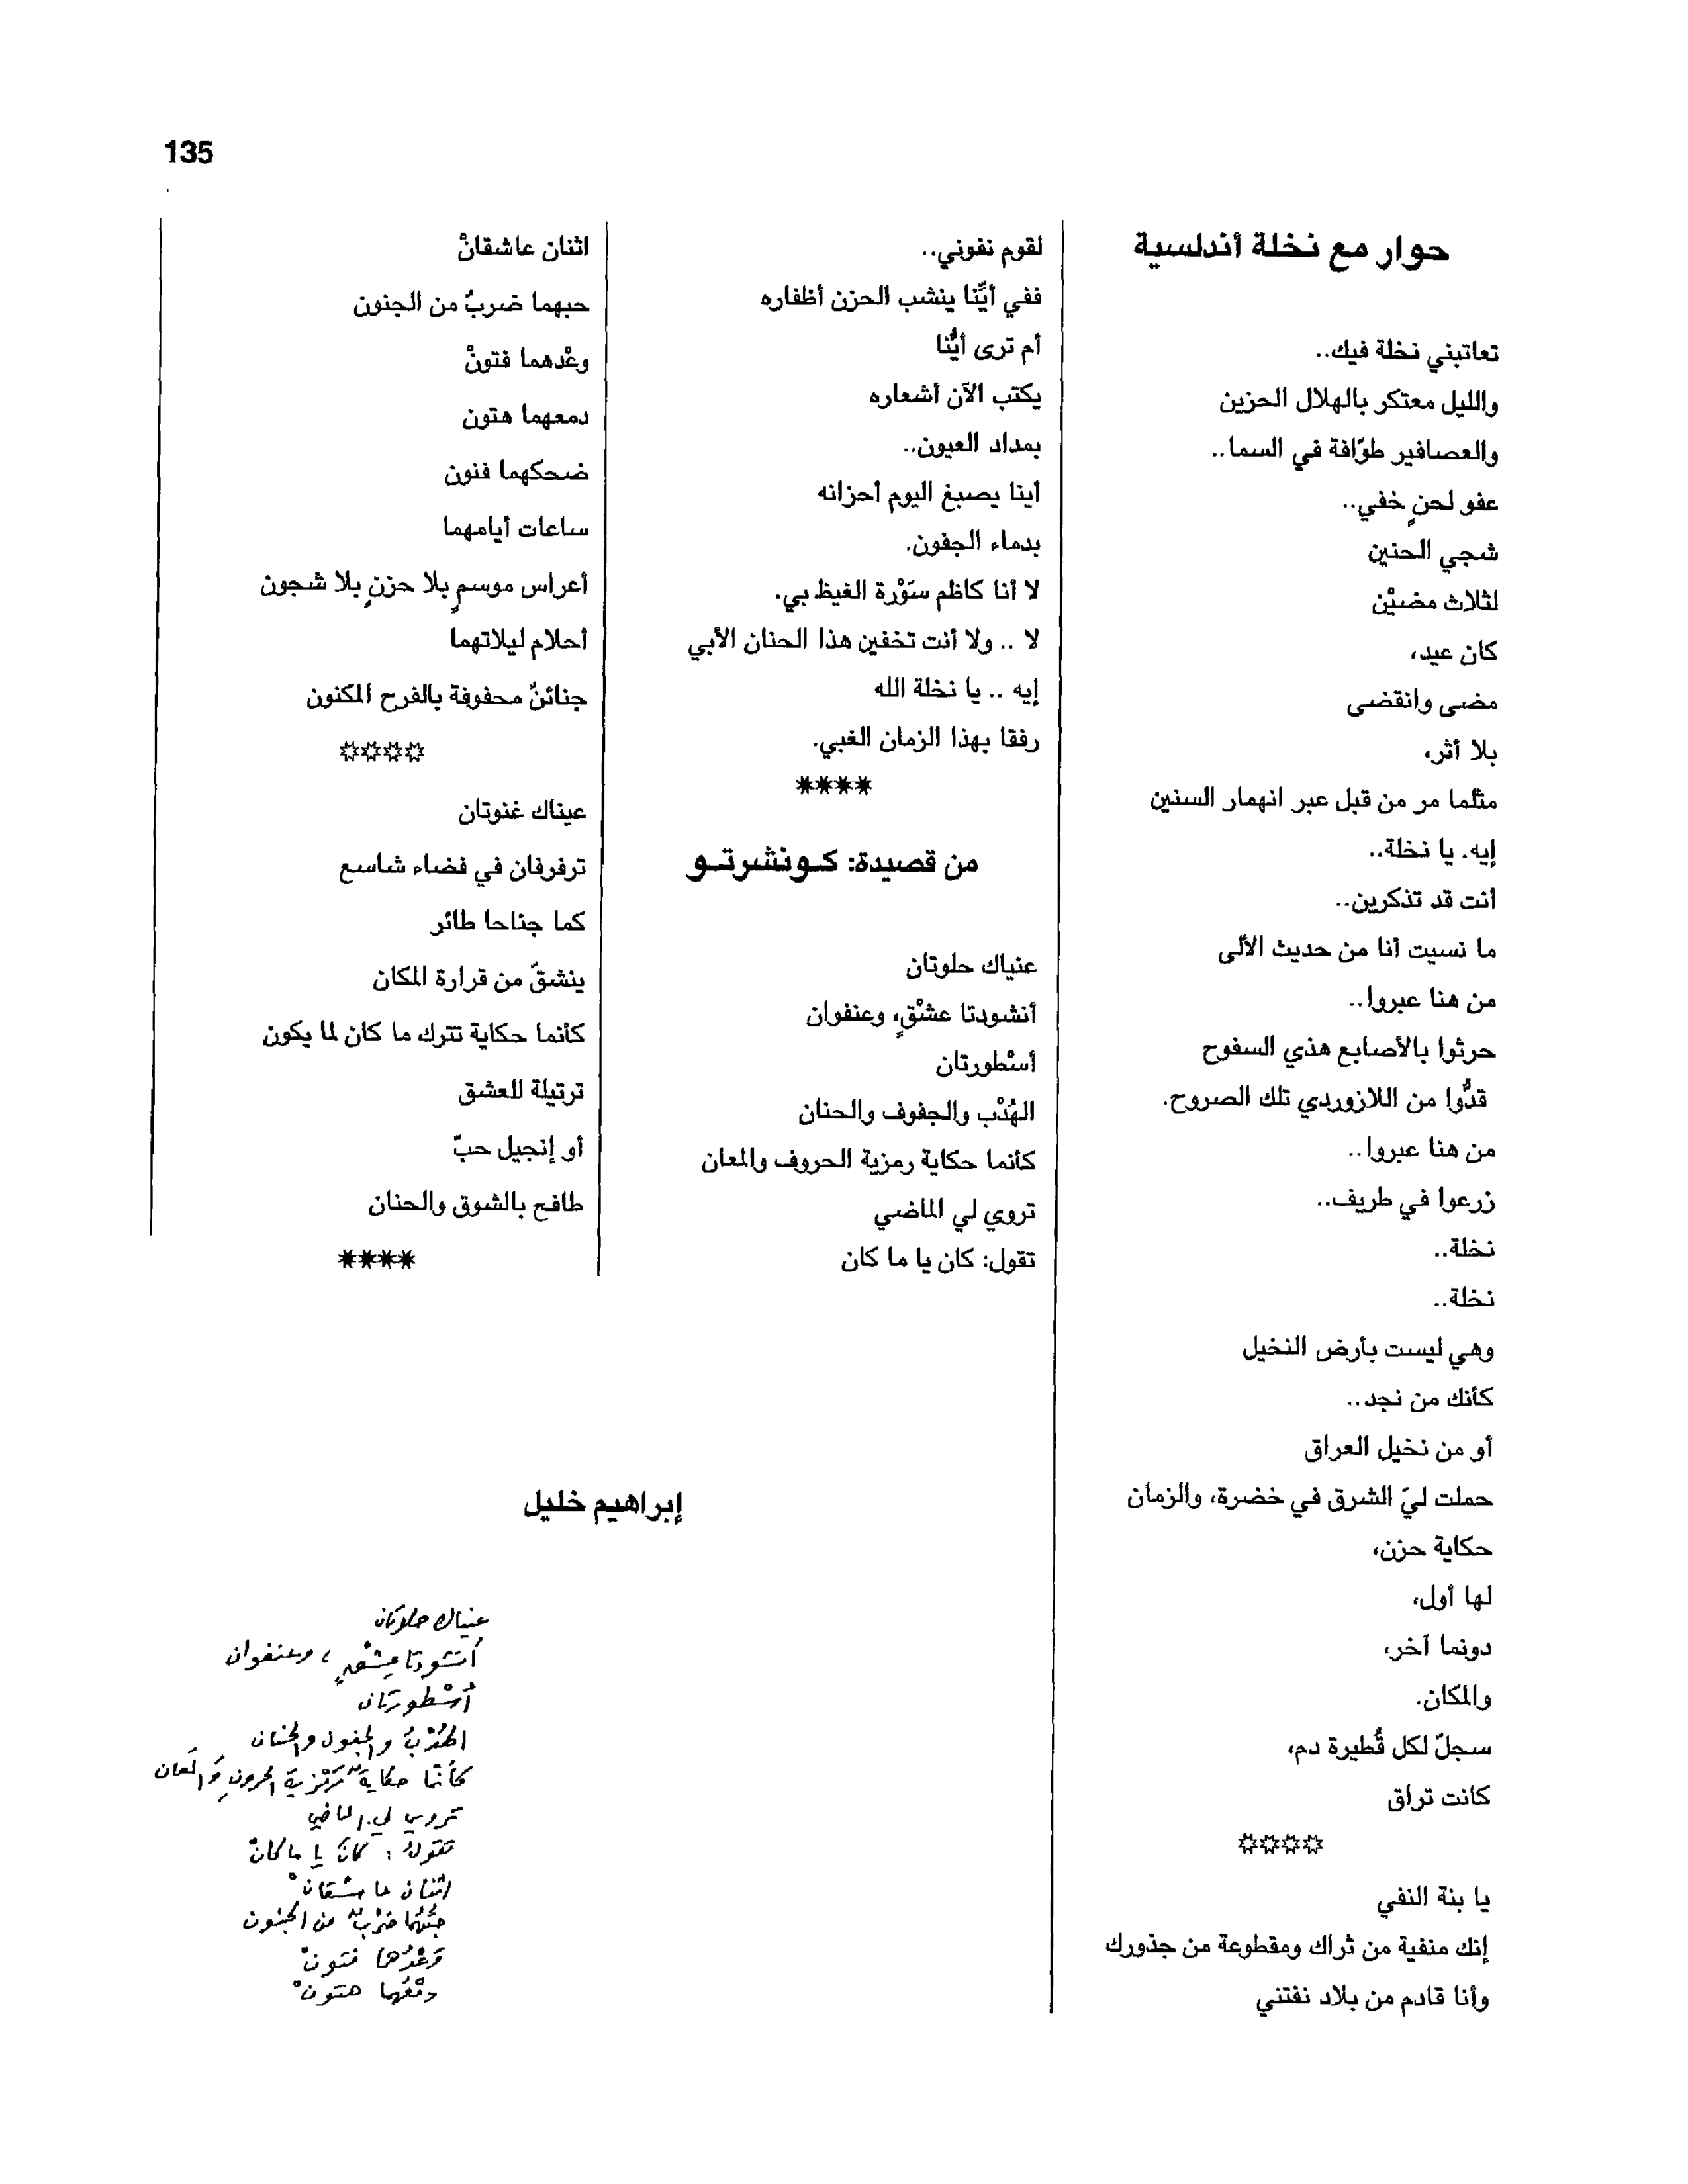 135
حوار مع نخلة أندلسية
تعاتبني نخلة فيك..
والليل معتكر بالهلال الحزين
والعصافير طوّافة في السما..
عفو لحنٍ خفي..
شجي الحنين
لثلاث مضيْن
كان عيد،
مضى وانقضى
بلا أثر،
مثلما مر من قبل عبر انهمار السنين
إيه. يا نخلة..
أنت قد تذكرين..
ما نسيت أنا من حديث الألى
من هنا عبروا..
حرثوا بالأصابع هذي السفوح
قدُّوا من اللازوردي تلك الصروح.
من هنا عبروا..
زرعوا في طريف..
نخلة..
نخلة..
وهي ليست بأرض النخيل
كأنك من نجد..
أو من نخيل العراق
حملت ليَ الشرق في خضرة، والزمان
حكاية حزن،
لها أول،
دونما آخر،
والمكان.
سجلّ لكل قُطيرة دم،
كانت تراق
✡✡✡✡
يا بنة النفي
إنك منفية من ثراك ومقطوعة من جذورك
وأنا قادم من بلاد نفتني
لقوم نفوني..
ففي أيِّنا ينشب الحزن أظفاره
أم ترى أيُّنا
يكتب الآن أشعاره
بمداد العيون..
أينا يصبغ اليوم أحزانه
بدماء الجفون.
لا أنا كاظم سَوْرة الغيظ بي.
لا .. ولا أنت تخفين هذا الحنان الأبي
إيه .. يا نخلة الله
رفقا بهذا الزمان الغبي.
****
من قصيدة: كـونشرتـو
عنياك حلوتان
أنشودتا عشْقٍ، وعنفوان
أسْطورتان
الهُدْب والجفوف والحنان
كأنما حكاية رمزية الحروف والمعان
تروي لي الماضي
تقول: كان يا ما كان
اثنان عاشقانْ
حبهما ضربٌ من الجنون
وعْدهما فتونْ
دمعهما هتون
ضحكهما فنون
ساعات أيامهما
أعراس موسمٍ بلا حزنٍ بلا شجون
أحلام ليلاتهما
جنائنٌ محفوفة بالفرح المكنون
✡✡✡✡
عيناك غنوتان
ترفرفان في فضاء شاسع
كما جناحا طائر
ينشقّ من قرارة المكان
كأنما حكاية تترك ما كان لما يكون
ترتيلة للعشق
أو إنجيل حبّ
طافح بالشوق والحنان
****
إبراهيم خليل
عنياك حلوتان
أنشودتا عِشْقٍ ، وعنفوان
أُسْطورتان
الهُدْبُ والجفون والحنان
كأنما حكايةٌ رَمْزيةَ الحروفِ وَالمعان
تروي لي الماضي
تقولُ : كانَ يا ما كانْ
اثنان عاشقانْ
حبُّهُما ضرْبٌ من الجنون
وَعْدُهُما فتونْ
دمْعُهما هتونْ